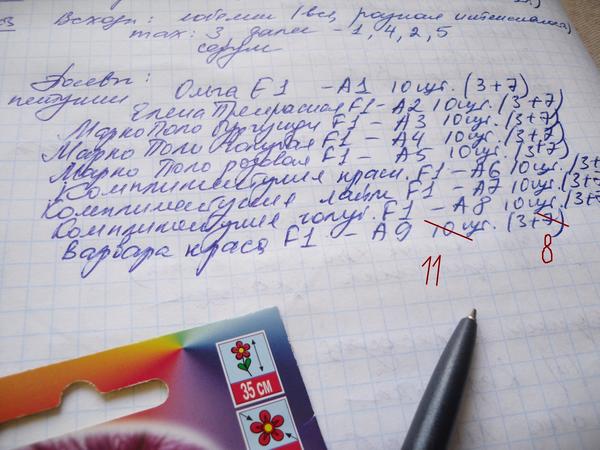 Всходы: лобелии (все, разная интенсивность)
max: 3 далее - 1, 4, 2, 5
Посевы:
петунии Ольга F1 - А1 10 шт. (3+7)
Елена Прекрасная F1 - А2 10 шт. (3+7)
Марко Поло F1 - А3 10 шт. (3+7)
Марко Поло F1 - А4 10 шт. (3+7)
Марко Поло розовая F1 - А5 10 шт. (3+7)
Комплиментуния красн. F1 - А6 10 шт. (3+
Комплиментуния лайм F1 - А7 10 шт. (3+7
Комплиментуния голуб. F1 - А8 10 шт. (3+7
Варвара краса F1 - А9 10 шт. (3+7)
11 8
35 СМ